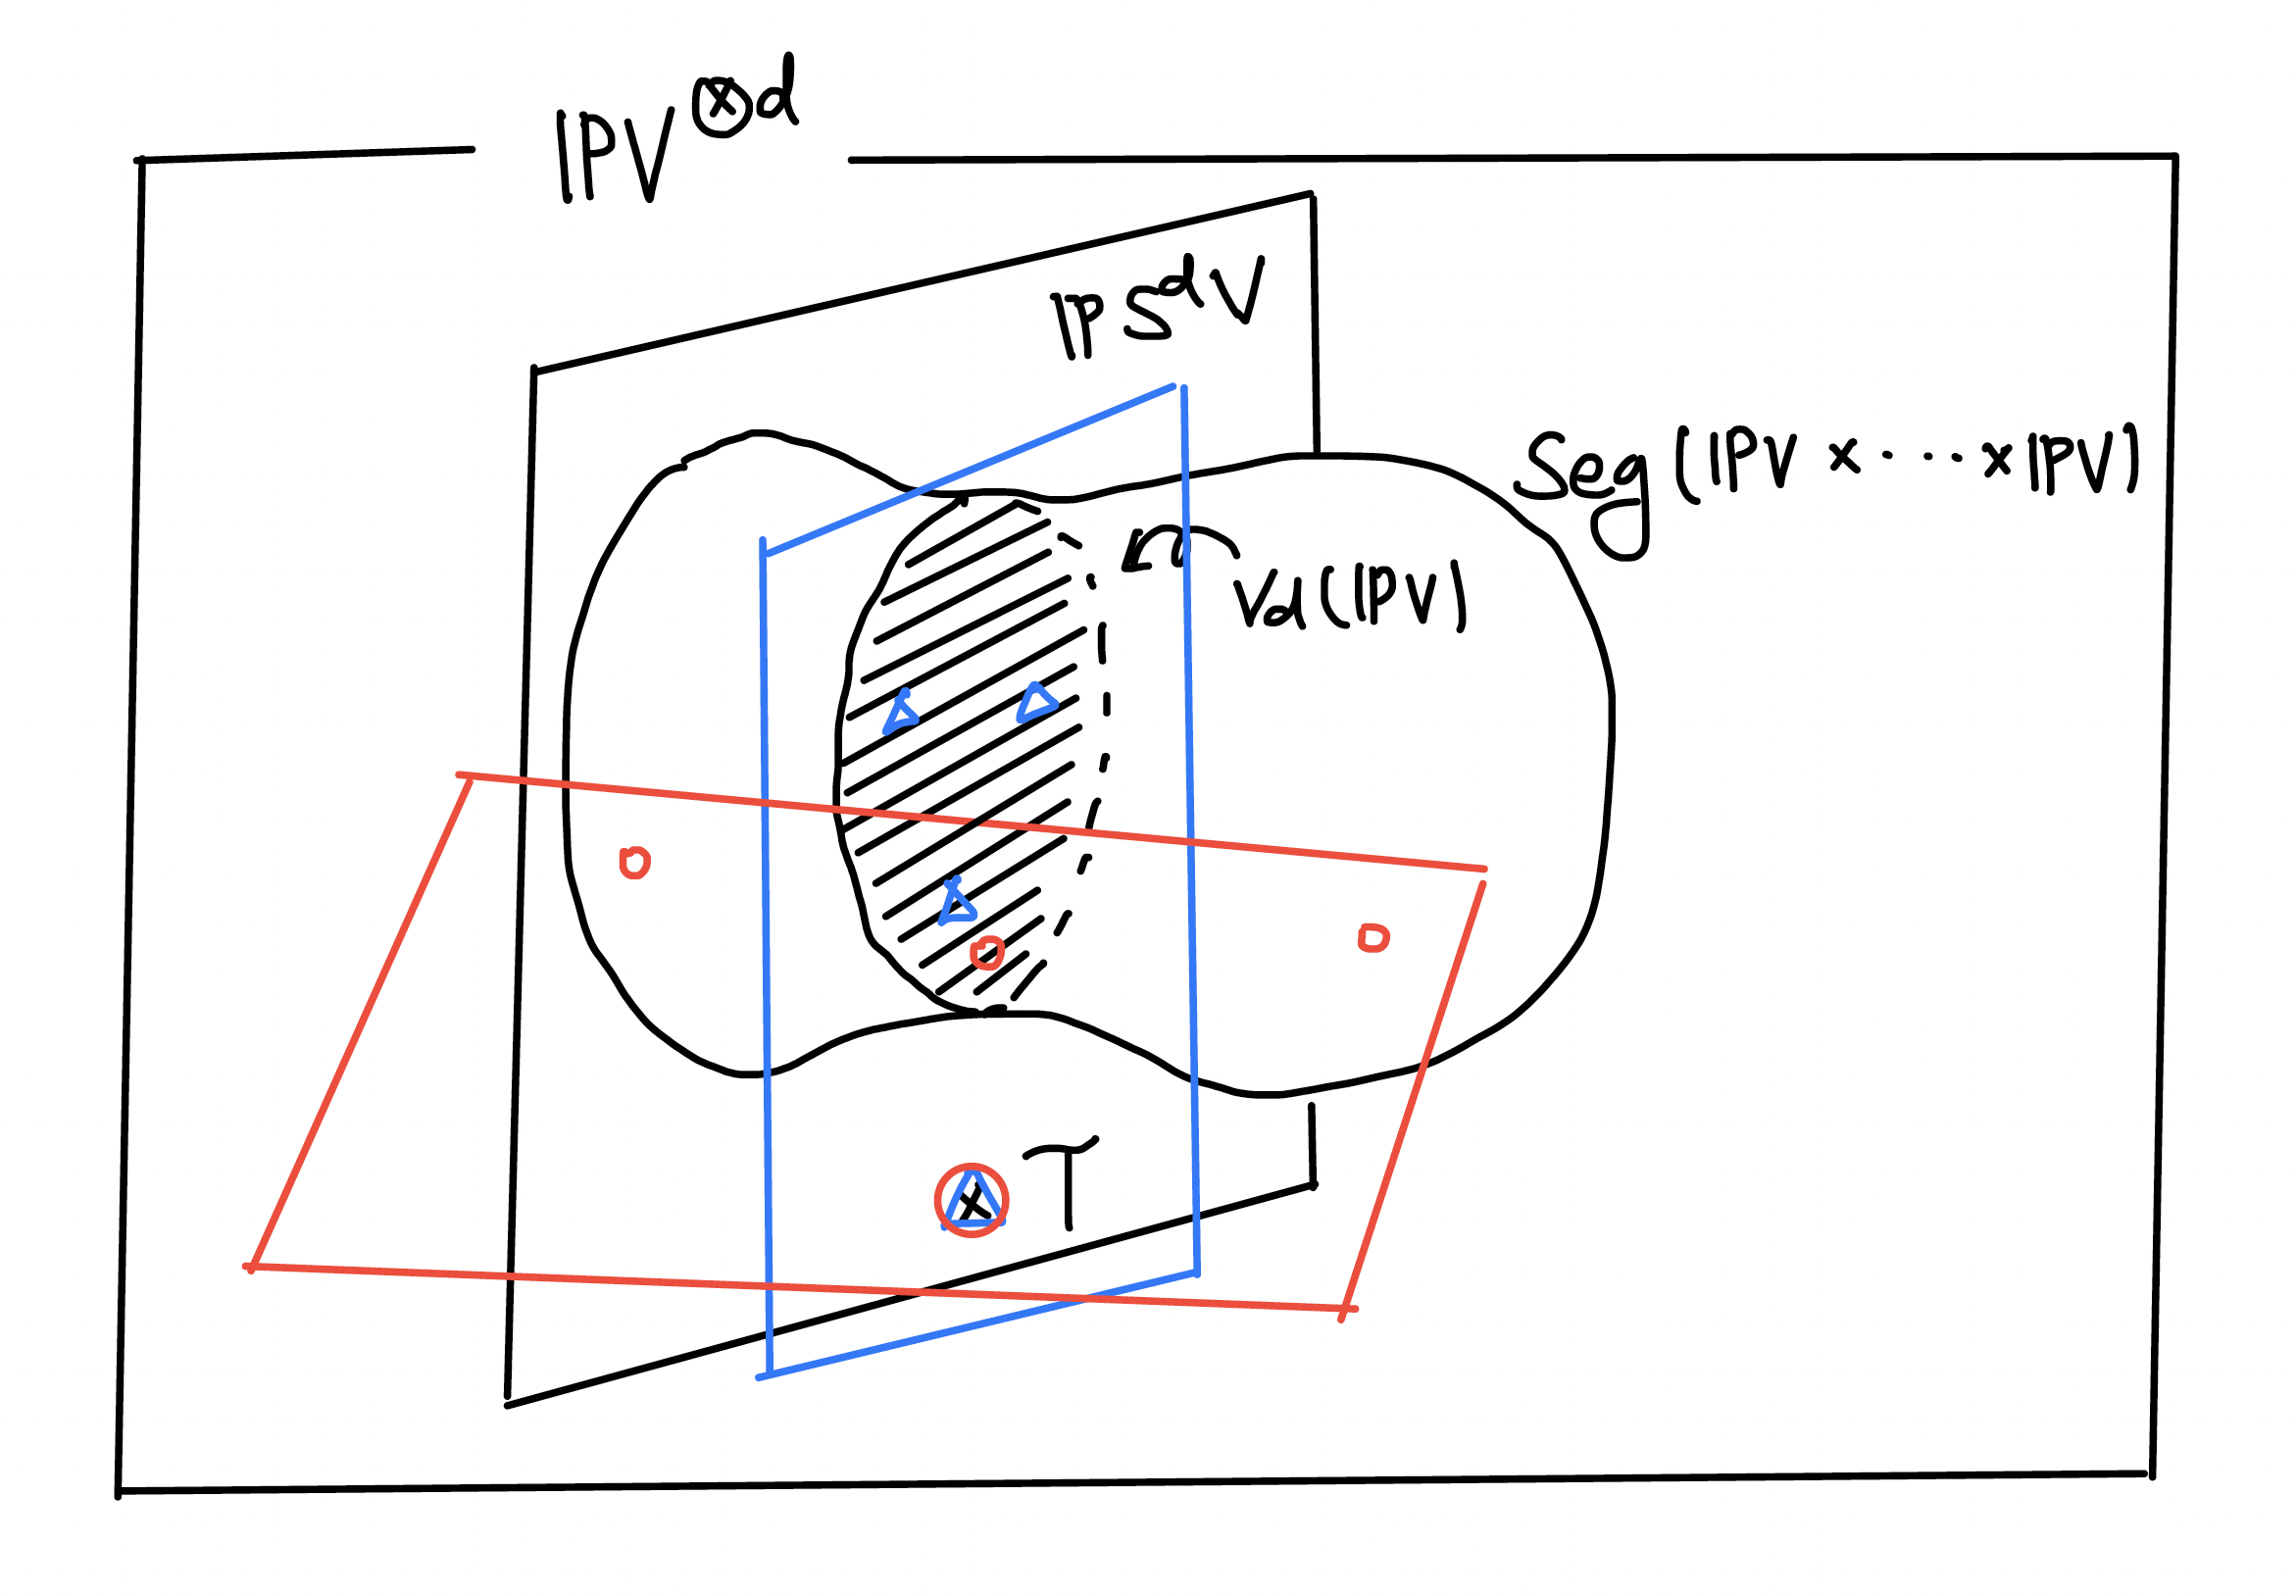 ℙV^{⊗d}
ℙS^dV
Seg(ℙV×·····×ℙV)
Vd(ℙV)
T